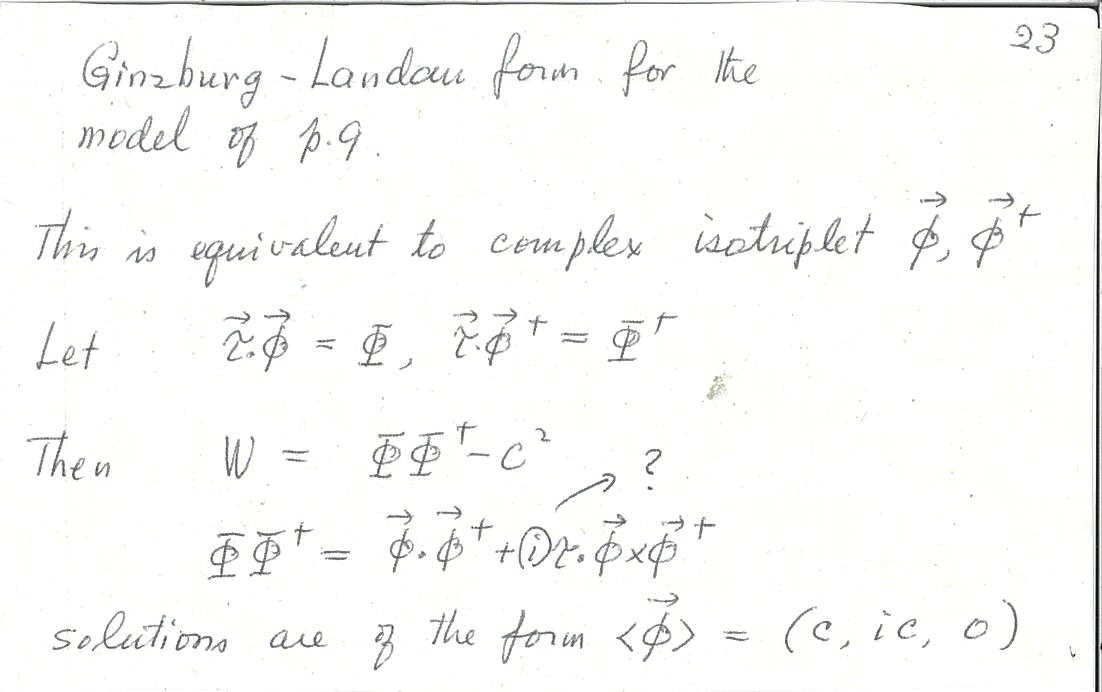 23
Ginzburg-Landau form for the
model of p.9.
This is equivalent to complex isotriplet ϕ⃗, ϕ⃗†
Let τ⃗·ϕ⃗ = Φ, τ⃗·ϕ⃗† = Φ†
Then W = ΦΦ† - c²
?
ΦΦ† = ϕ⃗·ϕ⃗† + iτ·ϕ⃗×ϕ⃗†
solutions are of the form <ϕ⃗> = (c, ic, 0).